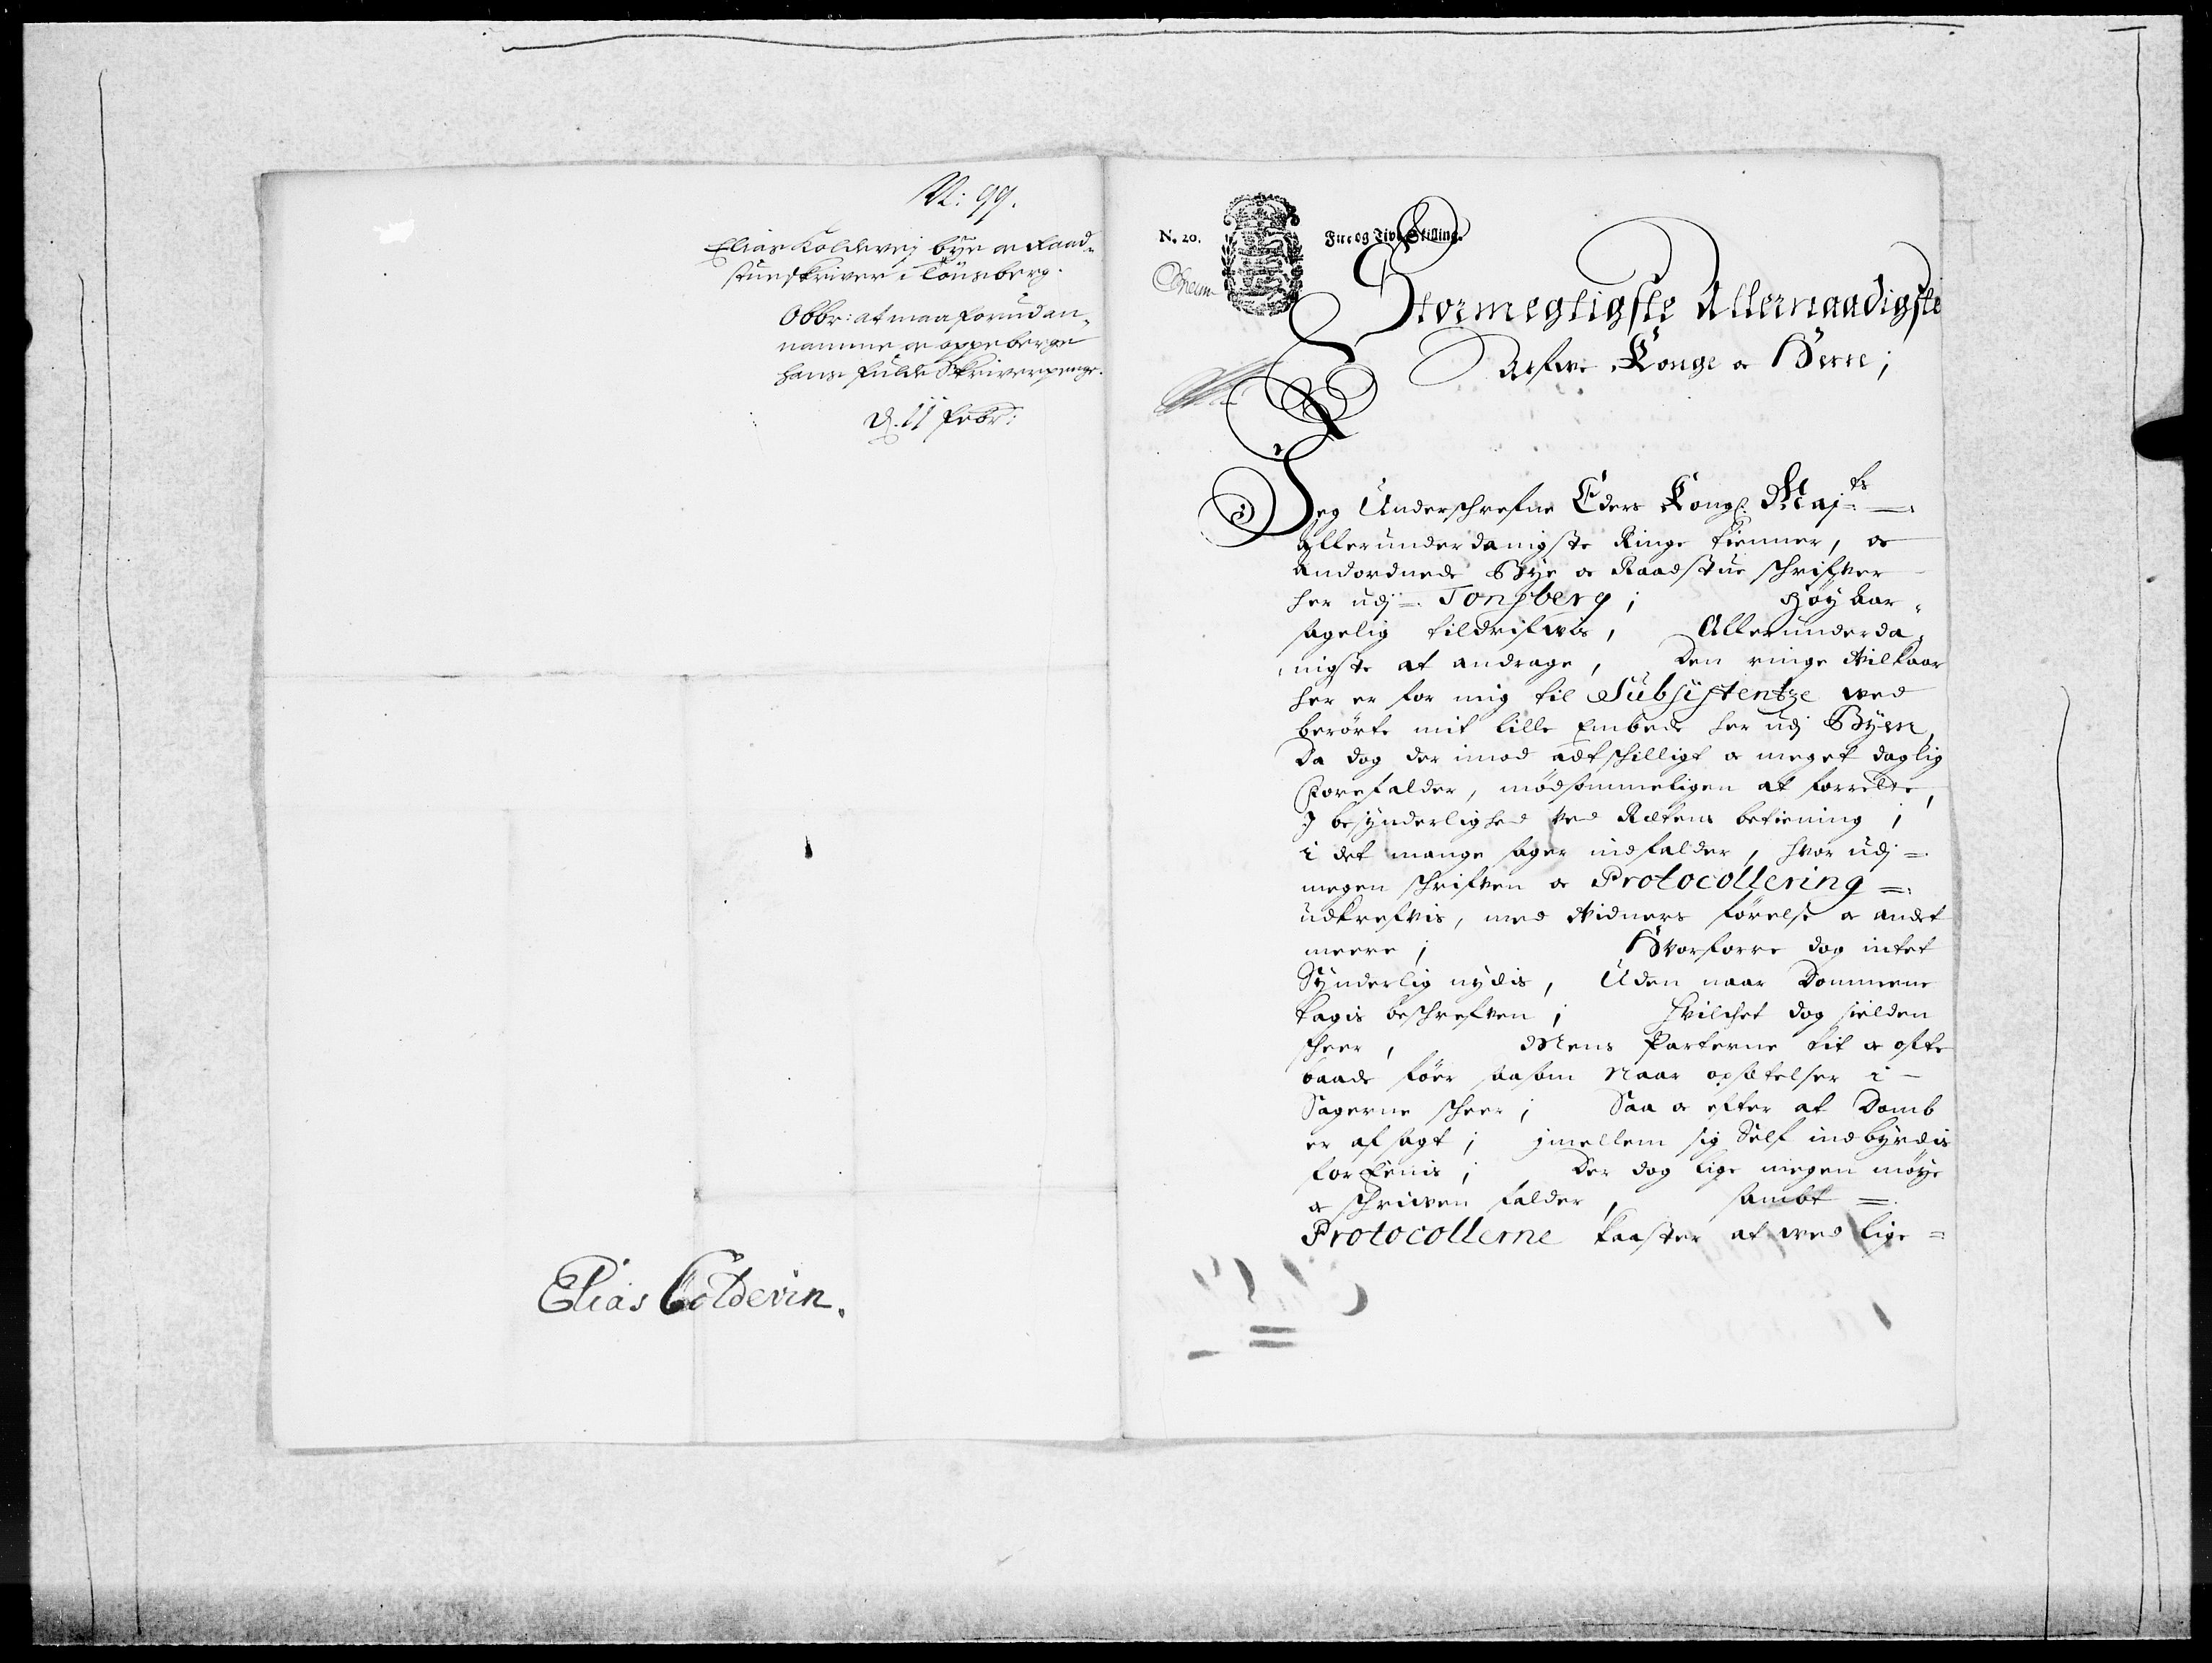 N: 99.
Elias Koldevej bÿe og Raad-
stueskriver i Tönsberg.
Obbr: at maa forud an-
namme og oppeberge
hans fulde Skriverpenge.
d. 11 febr:
Elias Coldevin.
N. 20. Fire og Tive Skilling.
Stormegtigste Allernaadigste
Arfve Konge oc Herre;
Jeg Underschrefne Eders Kongl. Majts
allerunderdanigste Ringe tienner, oc
andordnede Bÿe oc Raadstue schrifver
her udj =. Tonsberg; Höÿ aar-
sagelig tildrifves, Allerunderda-
nigste at andrage, den ringe Vilkaar
her er for mig til Subsistentze ved
berörte mit lille Embede her udj Bÿen,
da dog der imod adtschilligt oc meget daglig
forefalder, mödsommeligen at forrette,
I besÿnderlighed ved Rettens betiening;
i det mange sager indfalder, hvor udj =.
megen schrifven oc Protocollering =.
udkrefvis, med Vidners förelse oc andet
meere; Hvorforre dog intet
Sÿnderlig nÿdis, Uden naar Dommene
tagis beschrefven; Hvilchet dog sielden
scheer, Mens Parterne tit oc ofte
baade föer saasom Naar opsettelser i
Sagerne scheer; Saa oc efter at Domb
er afsagt; jmellem sig Self indbÿrdis
forEenis; Der dog lige megen möÿe
oc schriven falder, sambt =.
Protocollerne kaaster at ved lige =